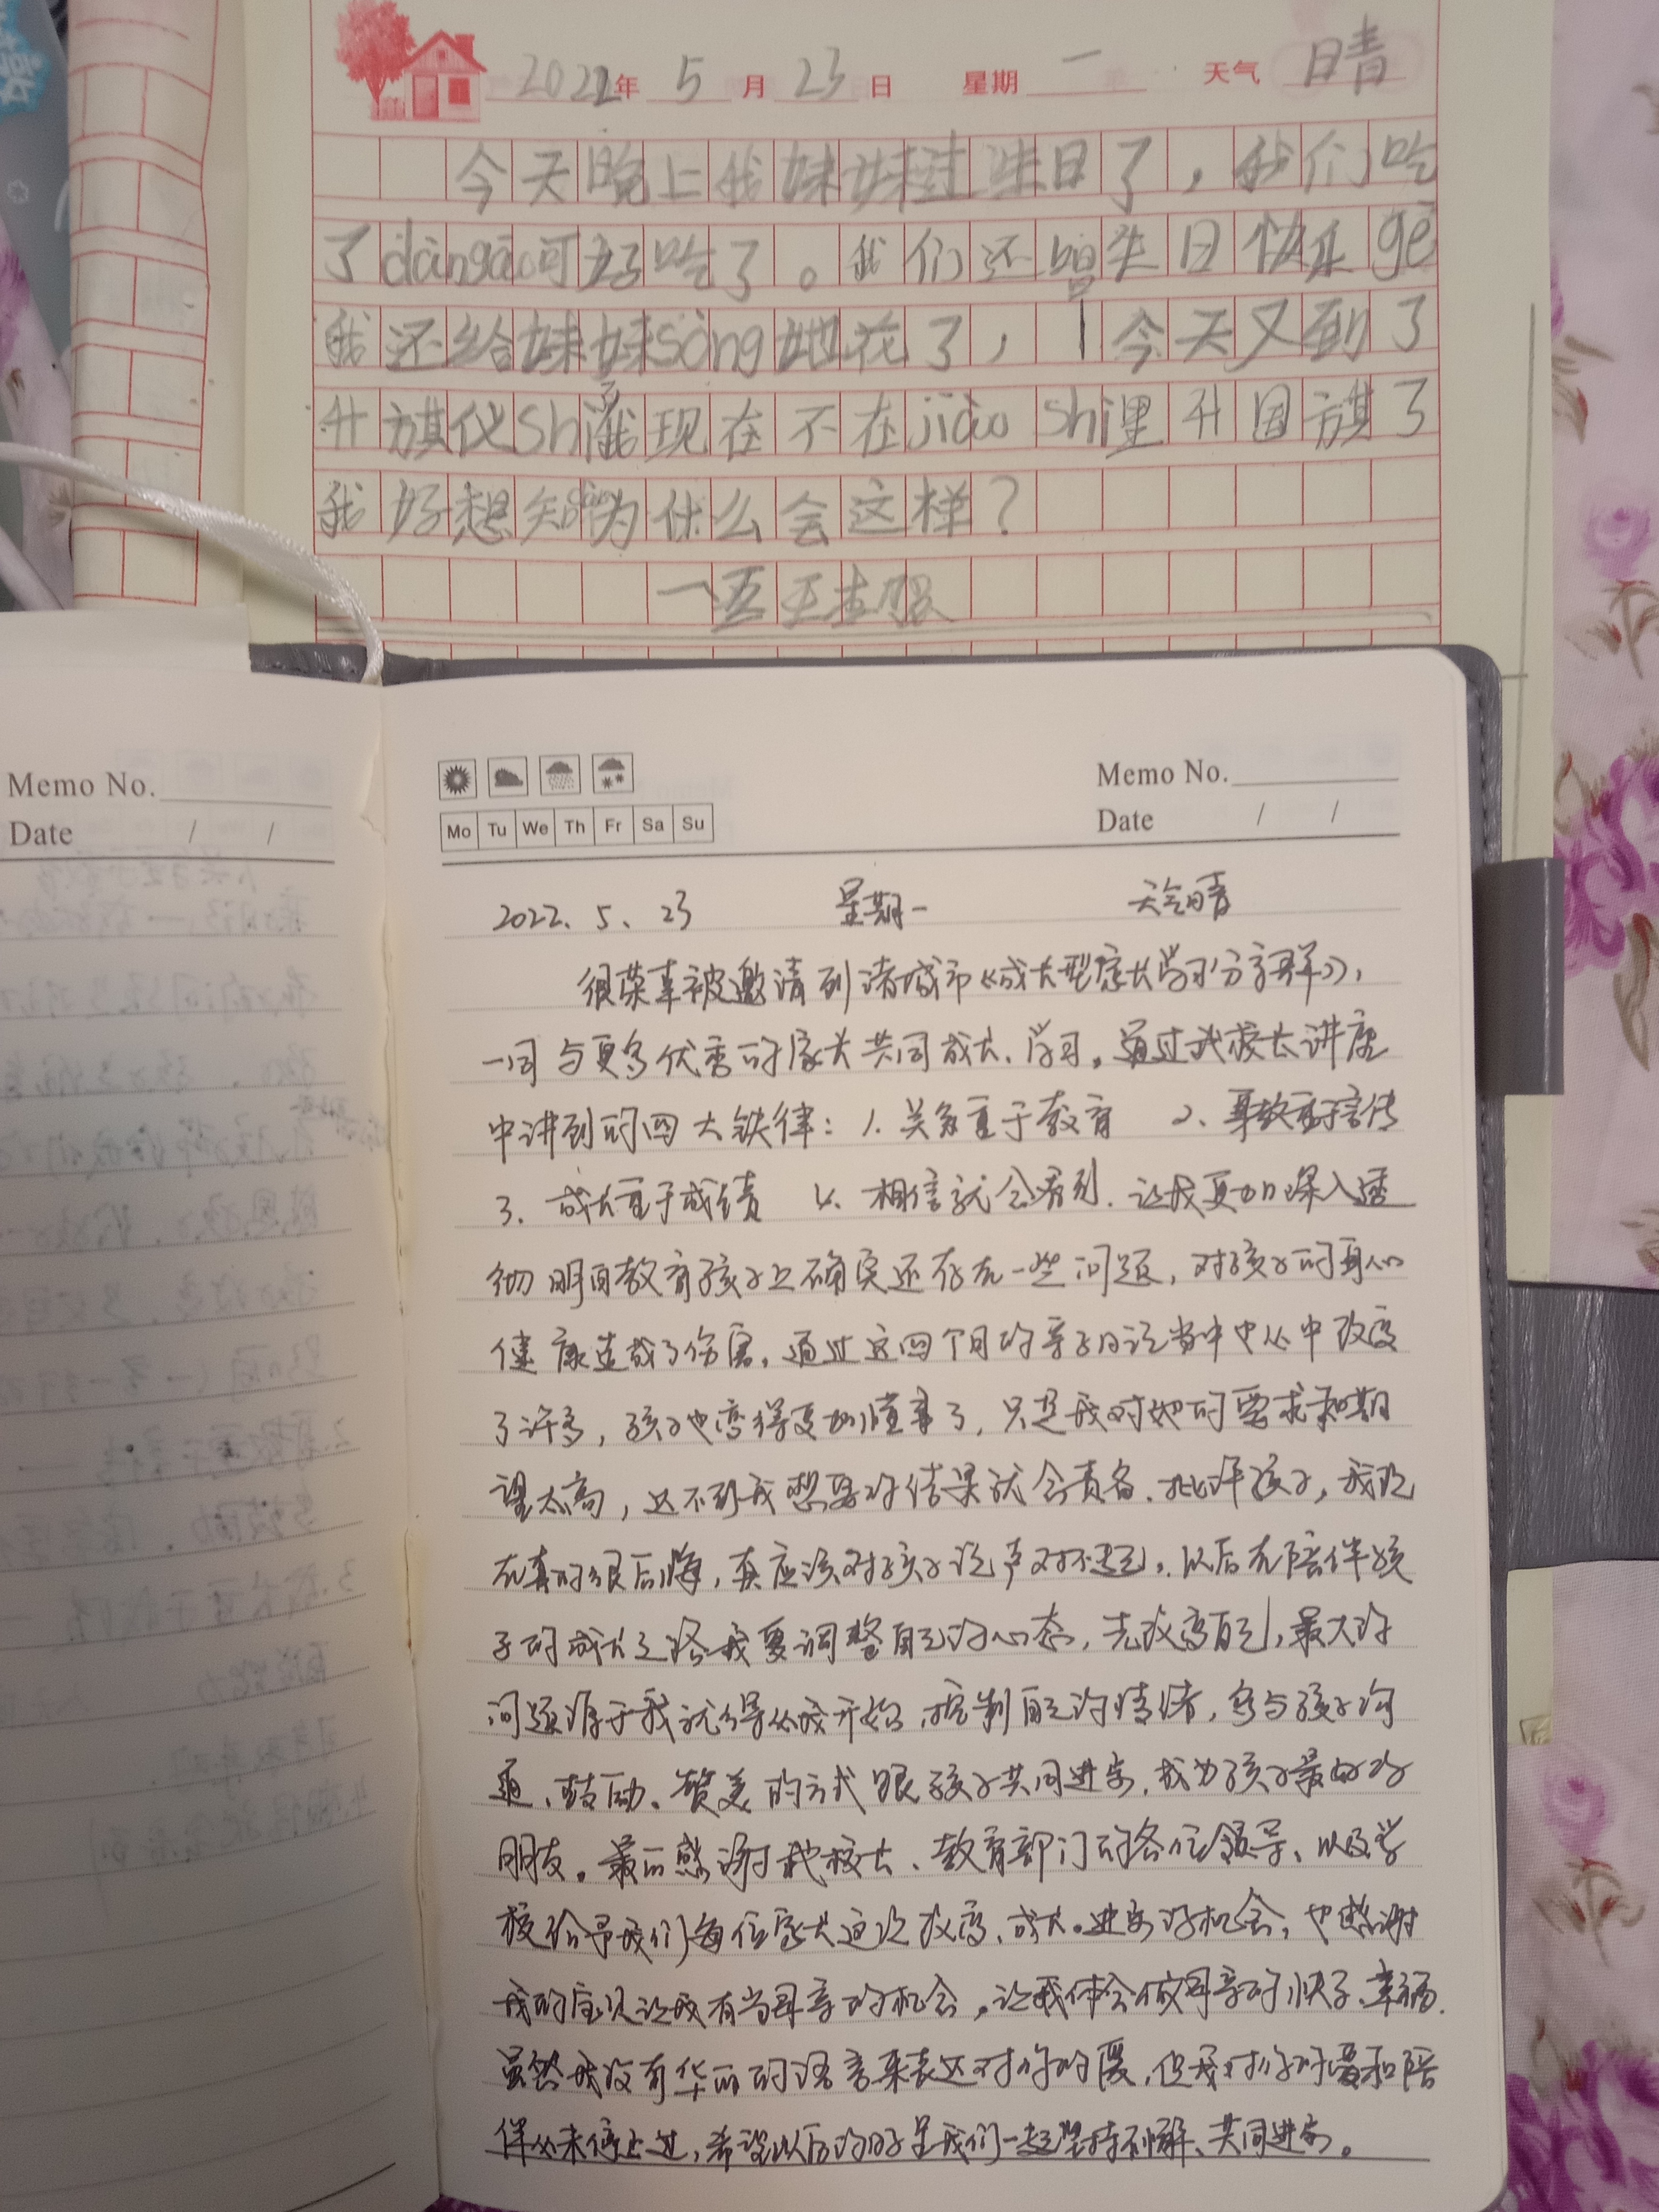 2022年 5 月 23 日 星期 一 天气 晴
今天晚上我妹妹过生日了，我们吃
了dàngāo可好吃了。我们还唱生日快乐gē
我还给妹妹sòng她花了，今天又到了
升旗仪shì我现在不在jiào shì里升国旗了
我好想知dào为什么会这样？
一五王
Memo No.
Date / /
Memo No.
Date / /
Mo Tu We Th Fr Sa Su
2022. 5. 23 星期一 天气晴
很荣幸被邀请到诸城市《成长型家长学习分享群》，
一同与更多优秀的家长共同成长、学习。通过武校长讲座
中讲到的四大铁律：1. 关系重于教育 2. 身教重于言传
3. 成长重于成绩 4. 相信就会看到. 让我更加深入透
彻明白教育孩子上确实还存在一些问题，对孩子的身心
健康造成了伤害。通过这四个月的亲子日记当中中从中改变
了许多，孩子也变得更加懂事了，只是我对她的要求和期
望太高，达不到我想要的结果就会责备、批评孩子，我现
在真的很后悔，真应该对孩子说声对不起。以后在陪伴孩
子的成长之路我要调整自己的心态，先改变自己，最大的
问题源于我就得从我开始.控制自己的情绪，多与孩子沟
通、鼓励、赞美的方式跟孩子共同进步，成为孩子最好的
朋友。最后感谢武校长、教育部门的各位领导、以及学
校给予我们每位家长这次改变、成长。进步的机会，也感谢
我的宝贝让我有当母亲的机会，让我体会做母亲的快乐、幸福.
虽然我没有华丽的语言来表达对你的爱，但我对你的爱和陪
伴从未停止过，希望以后的日子里我们一起坚持不懈、共同进步。